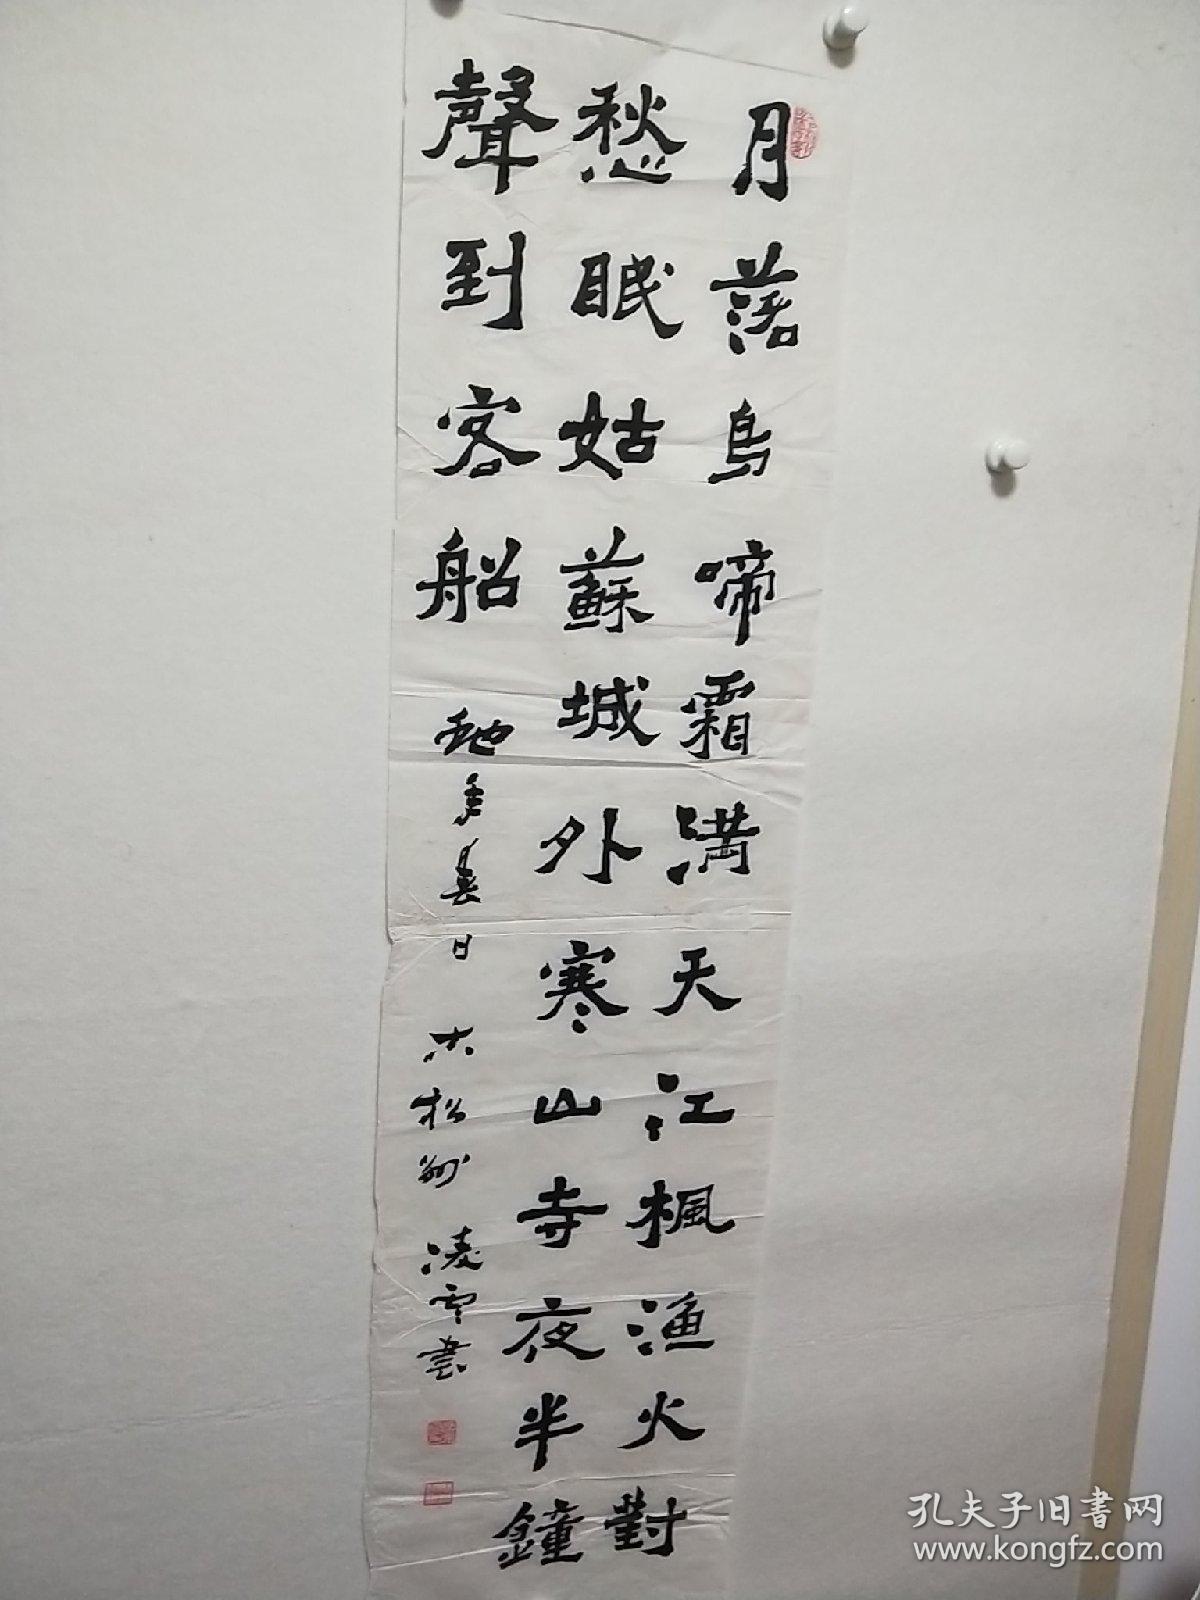 月落烏啼霜满天江楓漁火對
愁眠姑蘇城外寒山寺夜半鐘
聲到客船
春日 松州 凌雲書
孔夫子旧书网
www.kongfz.com